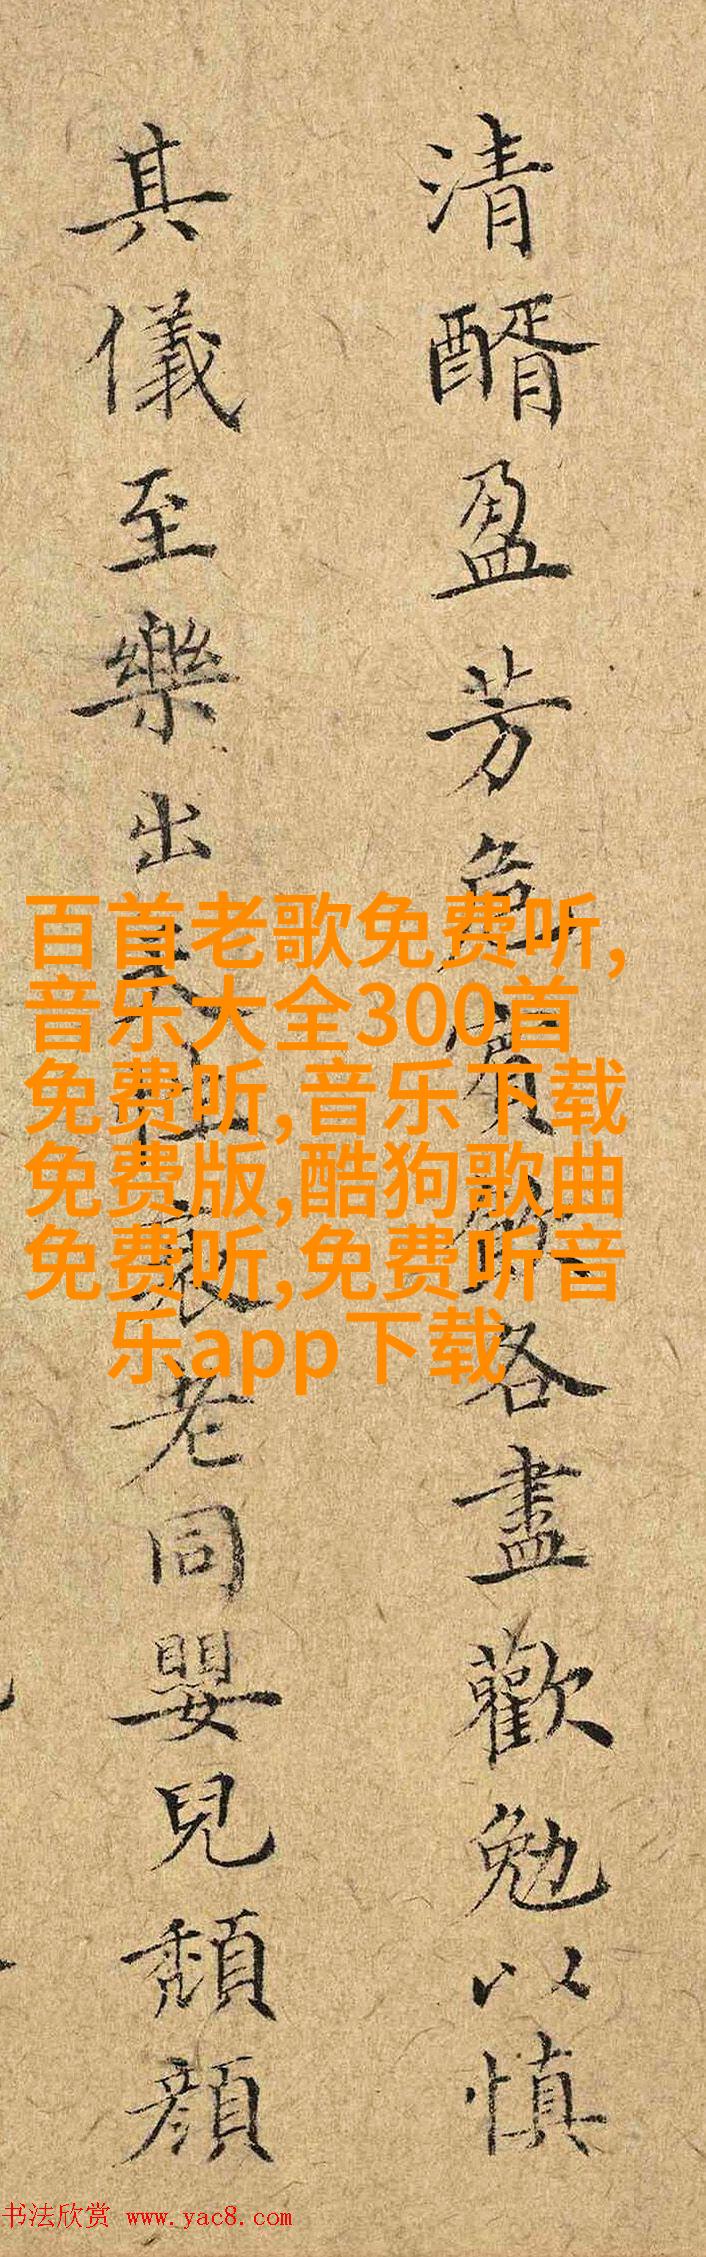 清醑盈芳卮賓飲各盡歡勉以慎
其儀至樂出天性衰老同嬰兒頹顏
百首老歌免费听,
音乐大全300首
免费听,音乐下载
免费版,酷狗歌曲
免费听,免费听音
乐app下载
书法欣赏 www.yac8.com